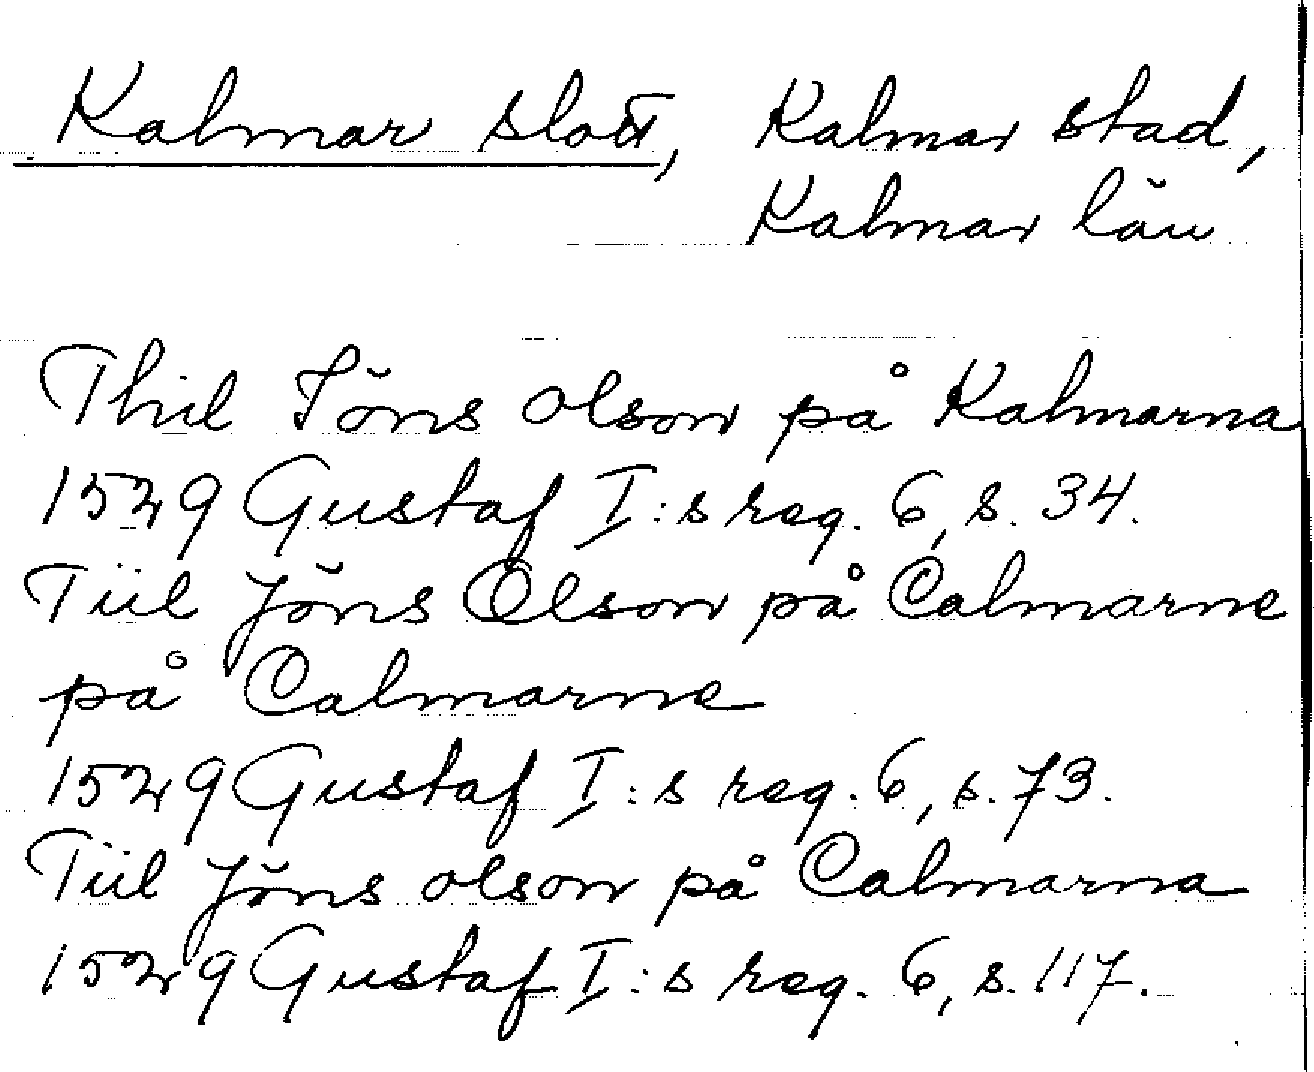 Kalmar slott, Kalmar stad,
Kalmar län
Thil Jöns olson på Kalmarna
1529 Gustaf I:s reg. 6, s. 34.
Tiil Jöns Olson på Calmarne
på Calmarne
1529 Gustaf I:s reg. 6, s. 73.
Tiil Jöns olson på Calmarna
1529 Gustaf I:s reg. 6, s. 117.